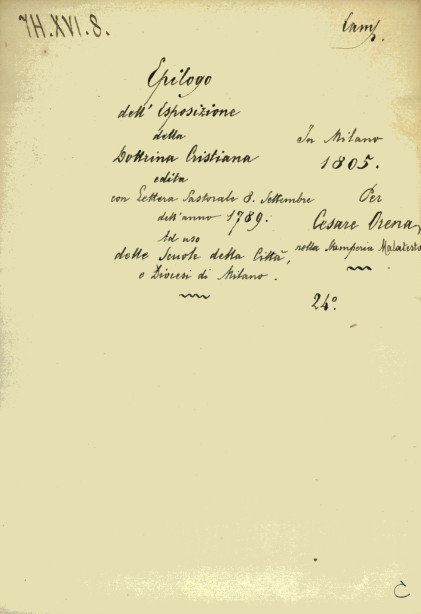 7H.XVI.8.
Epilogo
dell' Esposizione
della
Dottrina Cristiana
edita
con Lettera Pastorale 8. Settembre
dell'anno 1789.
Ad uso
delle Scuole della Città,
e Diocesi di Milano.
In Milano
1805.
Per
Cesare Orena,
nella Stamperia Malatesta
24°.